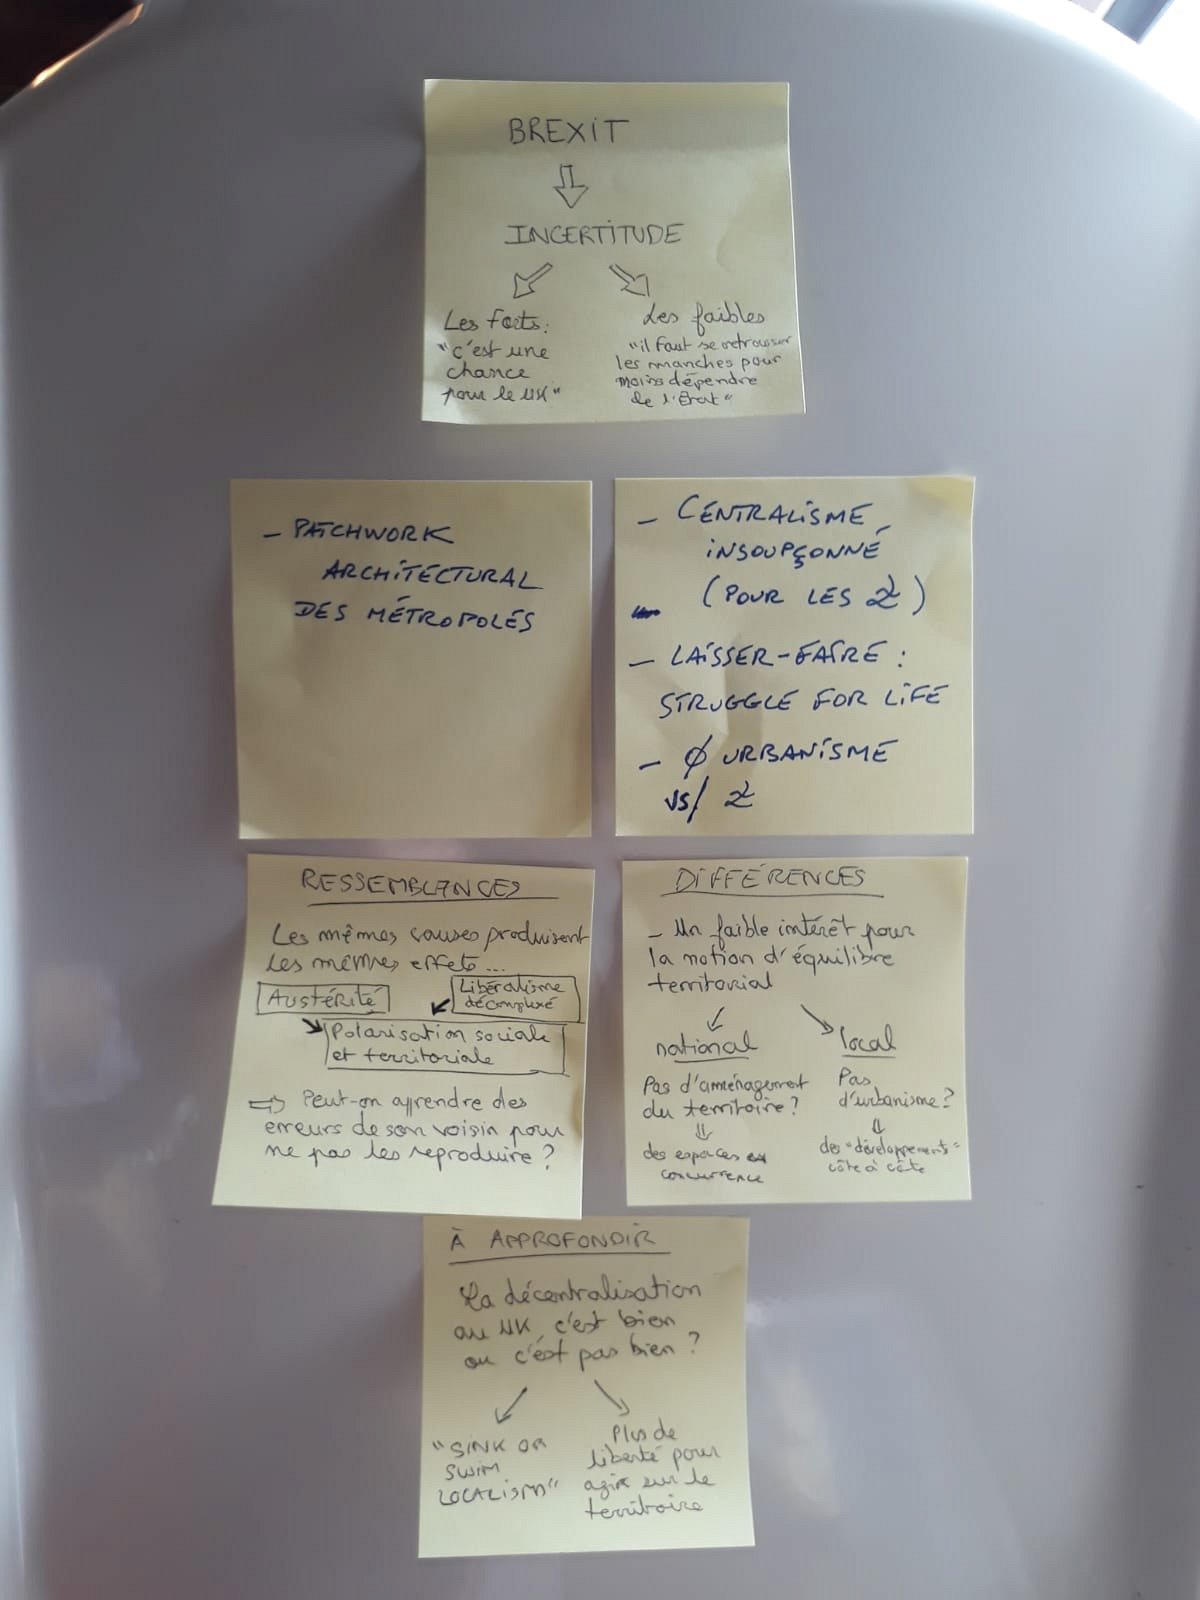 BREXIT
INCERTITUDE
Les forts:
"c'est une
chance
pour le UK"
Les faibles
"il faut se retrousser
les manches pour
moins dépendre
de l'Etat"
- PATCHWORK
ARCHITECTURAL
DES MÉTROPOLES
- CENTRALISME
INSOUPÇONNÉ
(POUR LES )
- LAISSER-FAIRE :
STRUGGLE FOR LIFE
- Ø URBANISME
VS/
RESSEMBLANCES
Les mêmes causes produisent
les mêmes effets...
Austérité
Libéralisme
décomplexé
Polarisation sociale
et territoriale
⇨ Peut-on apprendre des
erreurs de son voisin pour
ne pas les reproduire ?
DIFFÉRENCES
- Un faible intérêt pour
la notion d'équilibre
territorial
national
Pas d'aménagement
du territoire ?
des espaces en
concurrence
local
Pas
d'urbanisme ?
des "développements"
côte à côte
À APPROFONDIR
La décentralisation
au UK, c'est bien
ou c'est pas bien ?
"SINK OR
SWIM
LOCALISM"
Plus de
liberté pour
agir sur le
territoire